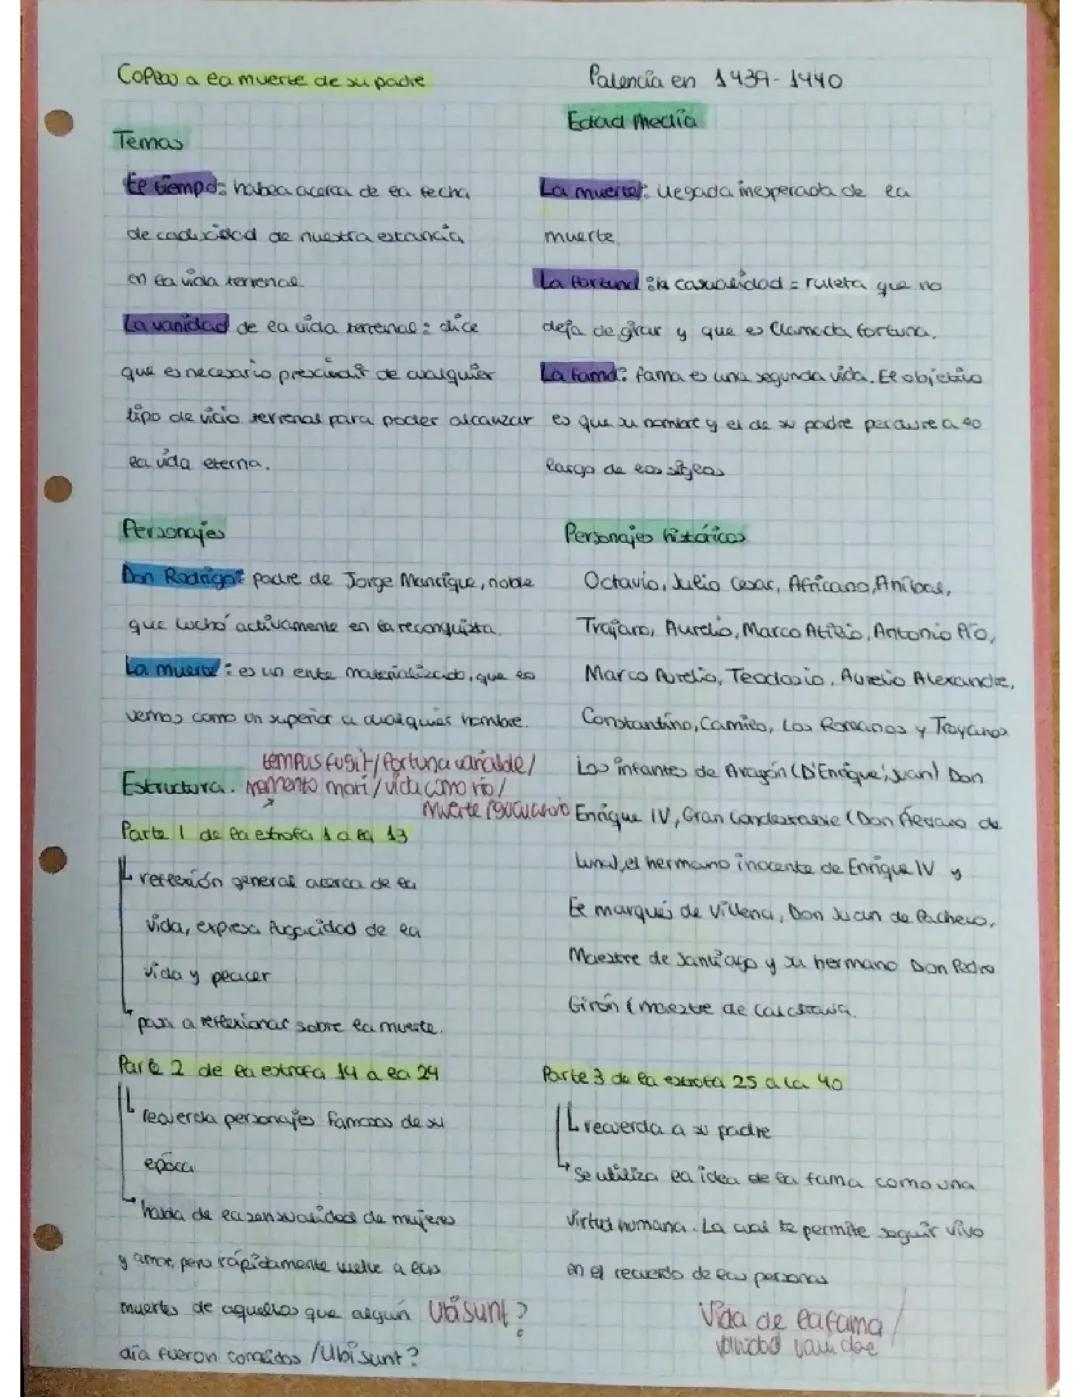 Coplas a la muerte de su padre
Palencia en 1439-1440
Edad Media
Temas
El tiempo: habla acerca de la fecha
de caducidad de nuestra estancia
en la vida terrenal.
La vanidad de la vida terrenal: dice
que es necesario prescindir de cualquier
tipo de vicio terrenal para poder alcanzar
la vida eterna.
La muerte: llegada inesperada de la
muerte.
La fortuna: la casualidad = ruleta que no
deja de girar y que es llamada fortuna.
La fama: fama es una segunda vida. El objetivo
es que su nombre y el de su padre perdure a lo
largo de los siglos
Personajes
Don Rodrigo: padre de Jorge Manrique, noble
que luchó activamente en la reconquista.
La muerte: es un ente materializado, que lo
vemos como un superior a cualquier hombre.
Personajes históricos
Octavio, Julio Cesar, Africano, Aníbal,
Trajano, Aurelio, Marco Atilio, Antonio Pío,
Marco Aurelio, Teodosio, Aurelio Alexandre,
Constantino, Camilo, Los Romanos y Troyanos
Los infantes de Aragón (D'Enrique, Juan) Don
Enrique IV, Gran Condestable (Don Álvaro de
Luna), el hermano inocente de Enrique IV y
El marqués de Villena, Don Juan de Pacheco,
Maestre de Santiago y su hermano Don Pedro
Girón (maestre de Calatrava.
tempus fugit/fortuna variable/
Estructura. momento mori/vida como río/
muerte
Parte 1 de la estrofa 1 a la 13
reflexión general acerca de la
vida, expresa fugacidad de la
vida y placer
pasa a reflexionar sobre la muerte.
Parte 2 de la estrofa 14 a la 24
recuerda personajes famosos de su
época
habla de la sensualidad de mujeres
y amor, pero rápidamente vuelve a las
muertes de aquellos que algún Ubi sunt?
día fueron conocidos /Ubi sunt?
Parte 3 de la estrofa 25 a la 40
recuerda a su padre
Se utiliza la idea de la fama como una
virtud humana. La cual te permite seguir vivo
en el recuerdo de las personas
Vida de la fama/